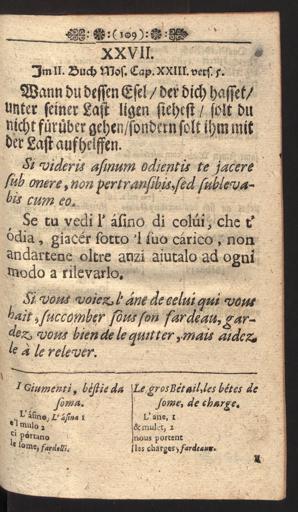 :(109):
XXVII.
Im II. Buch Mos. Cap. XXIII. vers. 5.
Wann du dessen Esel / der dich hasset /
unter seiner Last ligen siehest / solt du
nicht fürüber gehen / sondern solt ihm mit
der Last aufhelffen.
Si videris asinum odientis te jacere
sub onere, non pertransibis, sed subleva-
bis cum eo.
Se tu vedi l' ásino di colúi, che t'
ódia, giacér sotto 'l suo cárico, non
andartene oltre anzi aiutalo ad ogni
modo a rilevarlo.
Si vous voiez l' áne de celui qui vous
hait, succomber sous son fardeau, gar-
dez vous bien de le quitter, mais aidez
le à le relever.
I Giumenti, béstie da
soma.
L' ásino, L' ásina 1
e'l mulo 2
ci pórtano
le some, fardelli.
Le gros Bétail, les bétes de
some, de charge.
L' ane, 1
& mulet, 2
nous portent
les charges, fardeaux.